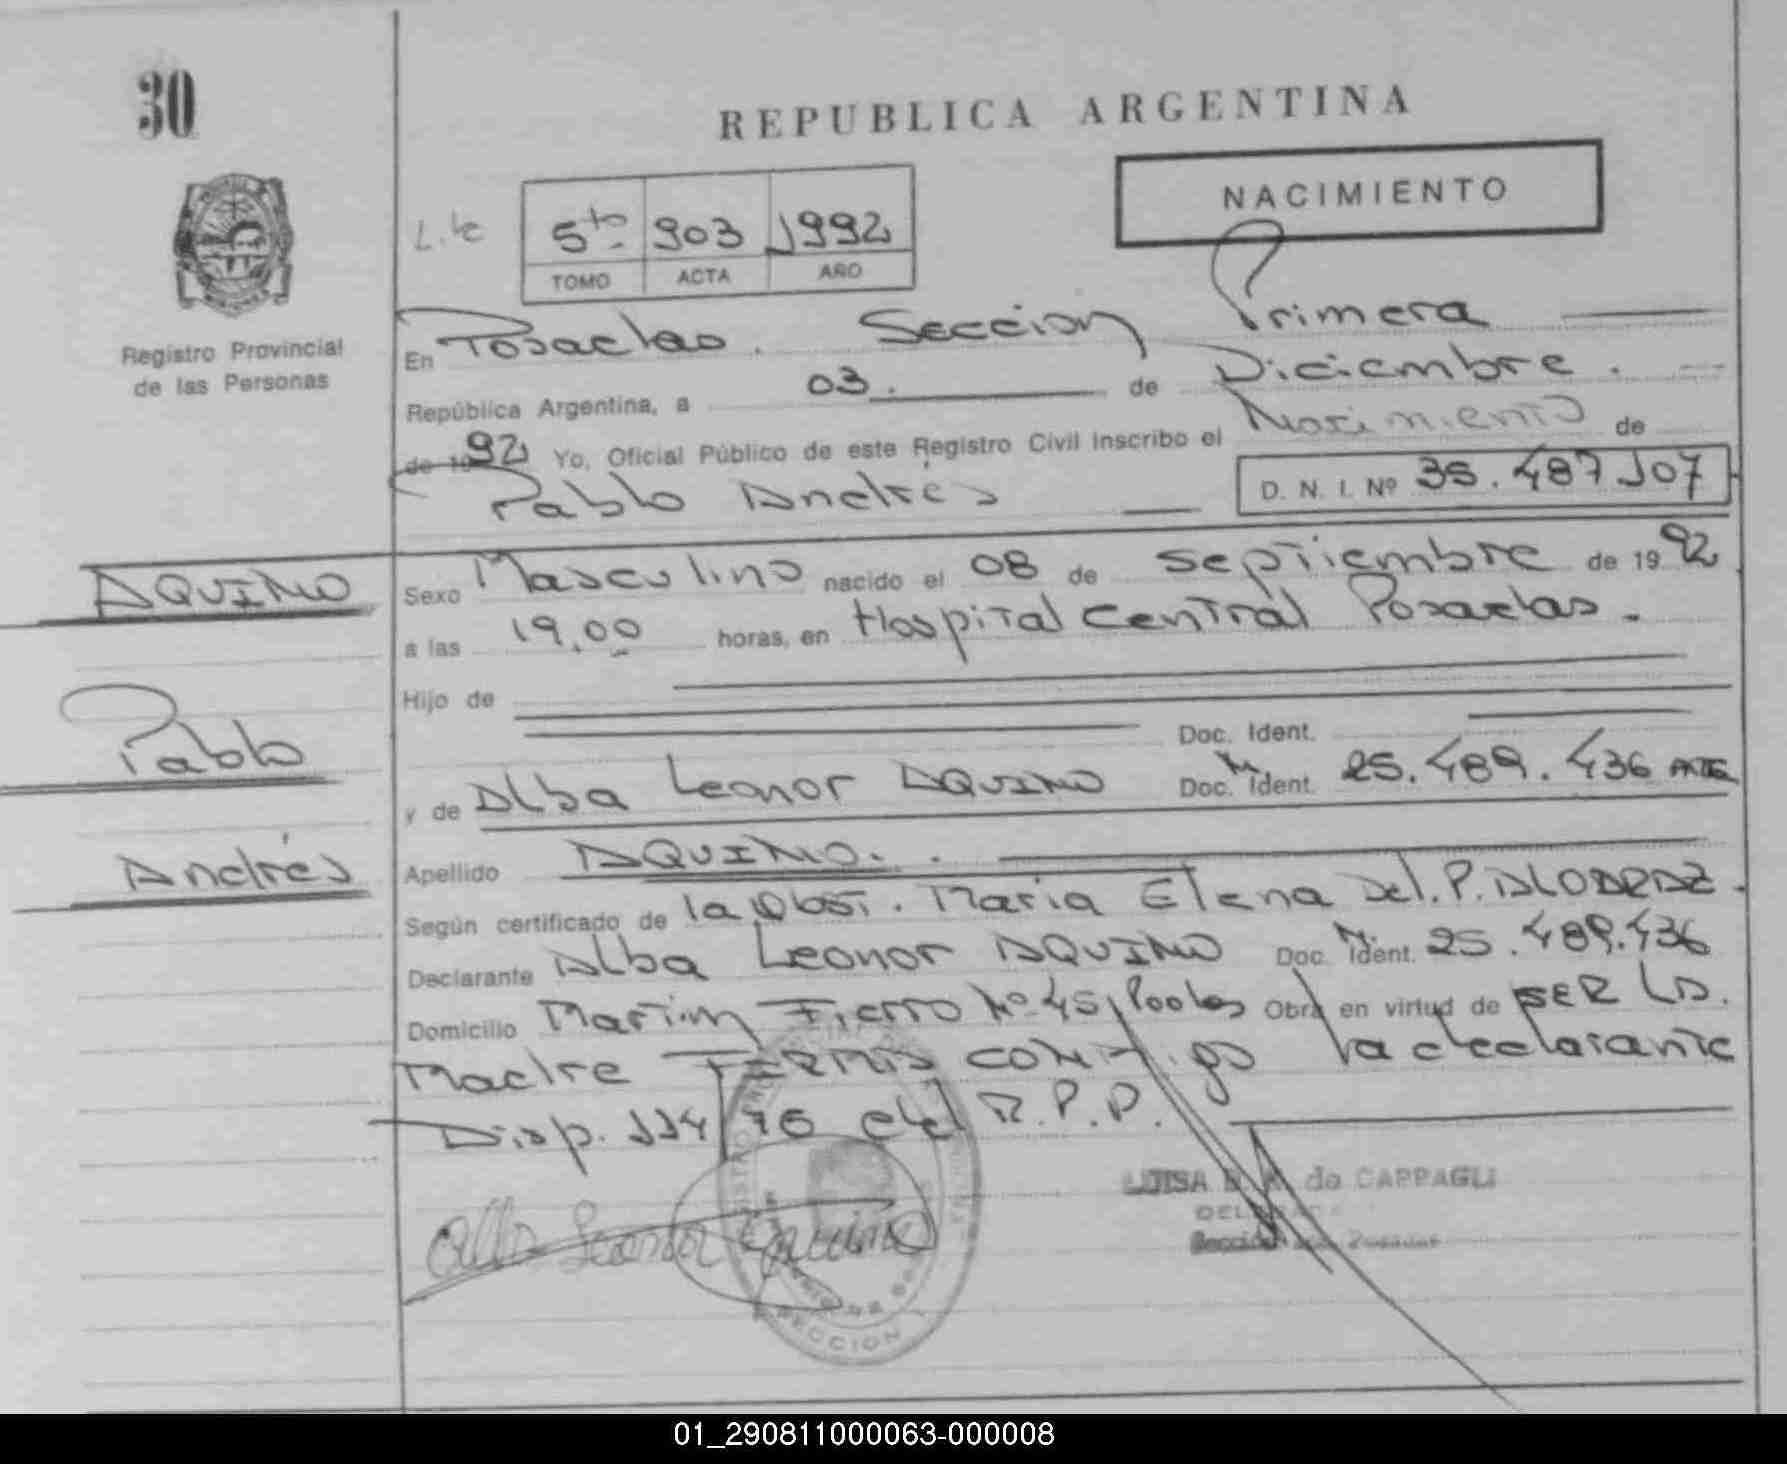 30
REPUBLICA ARGENTINA
NACIMIENTO
5to 903 1992
TOMO ACTA AÑO
Registro Provincial
de las Personas
En Posadas. Sección Primera
República Argentina, a 03. de Diciembre.
de 1992 Yo, Oficial Público de este Registro Civil inscribo el Nacimiento de
Pablo Andrés D. N. I. Nº 35.487.107
AQUINO
Pablo
Andrés
Sexo Masculino nacido el 08 de septiembre de 1992
a las 19,00 horas, en Hospital Central Posadas.
Hijo de
Doc. Ident.
y de Alba Leonor AQUINO Doc. Ident. 25.489.436
Apellido AQUINO.
Según certificado de la Obst. Maria Elena Del. P.
Declarante Alba Leonor AQUINO Doc. Ident. 25.489.436
Domicilio Martin Fierro Nº 45 Obra en virtud de SER LA.
Madre FIRMA conmigo la declarante
Disp. 114/76 del R.P.P.
LUISA de CAPPAGLI
SECCION
01_290811000063-000008